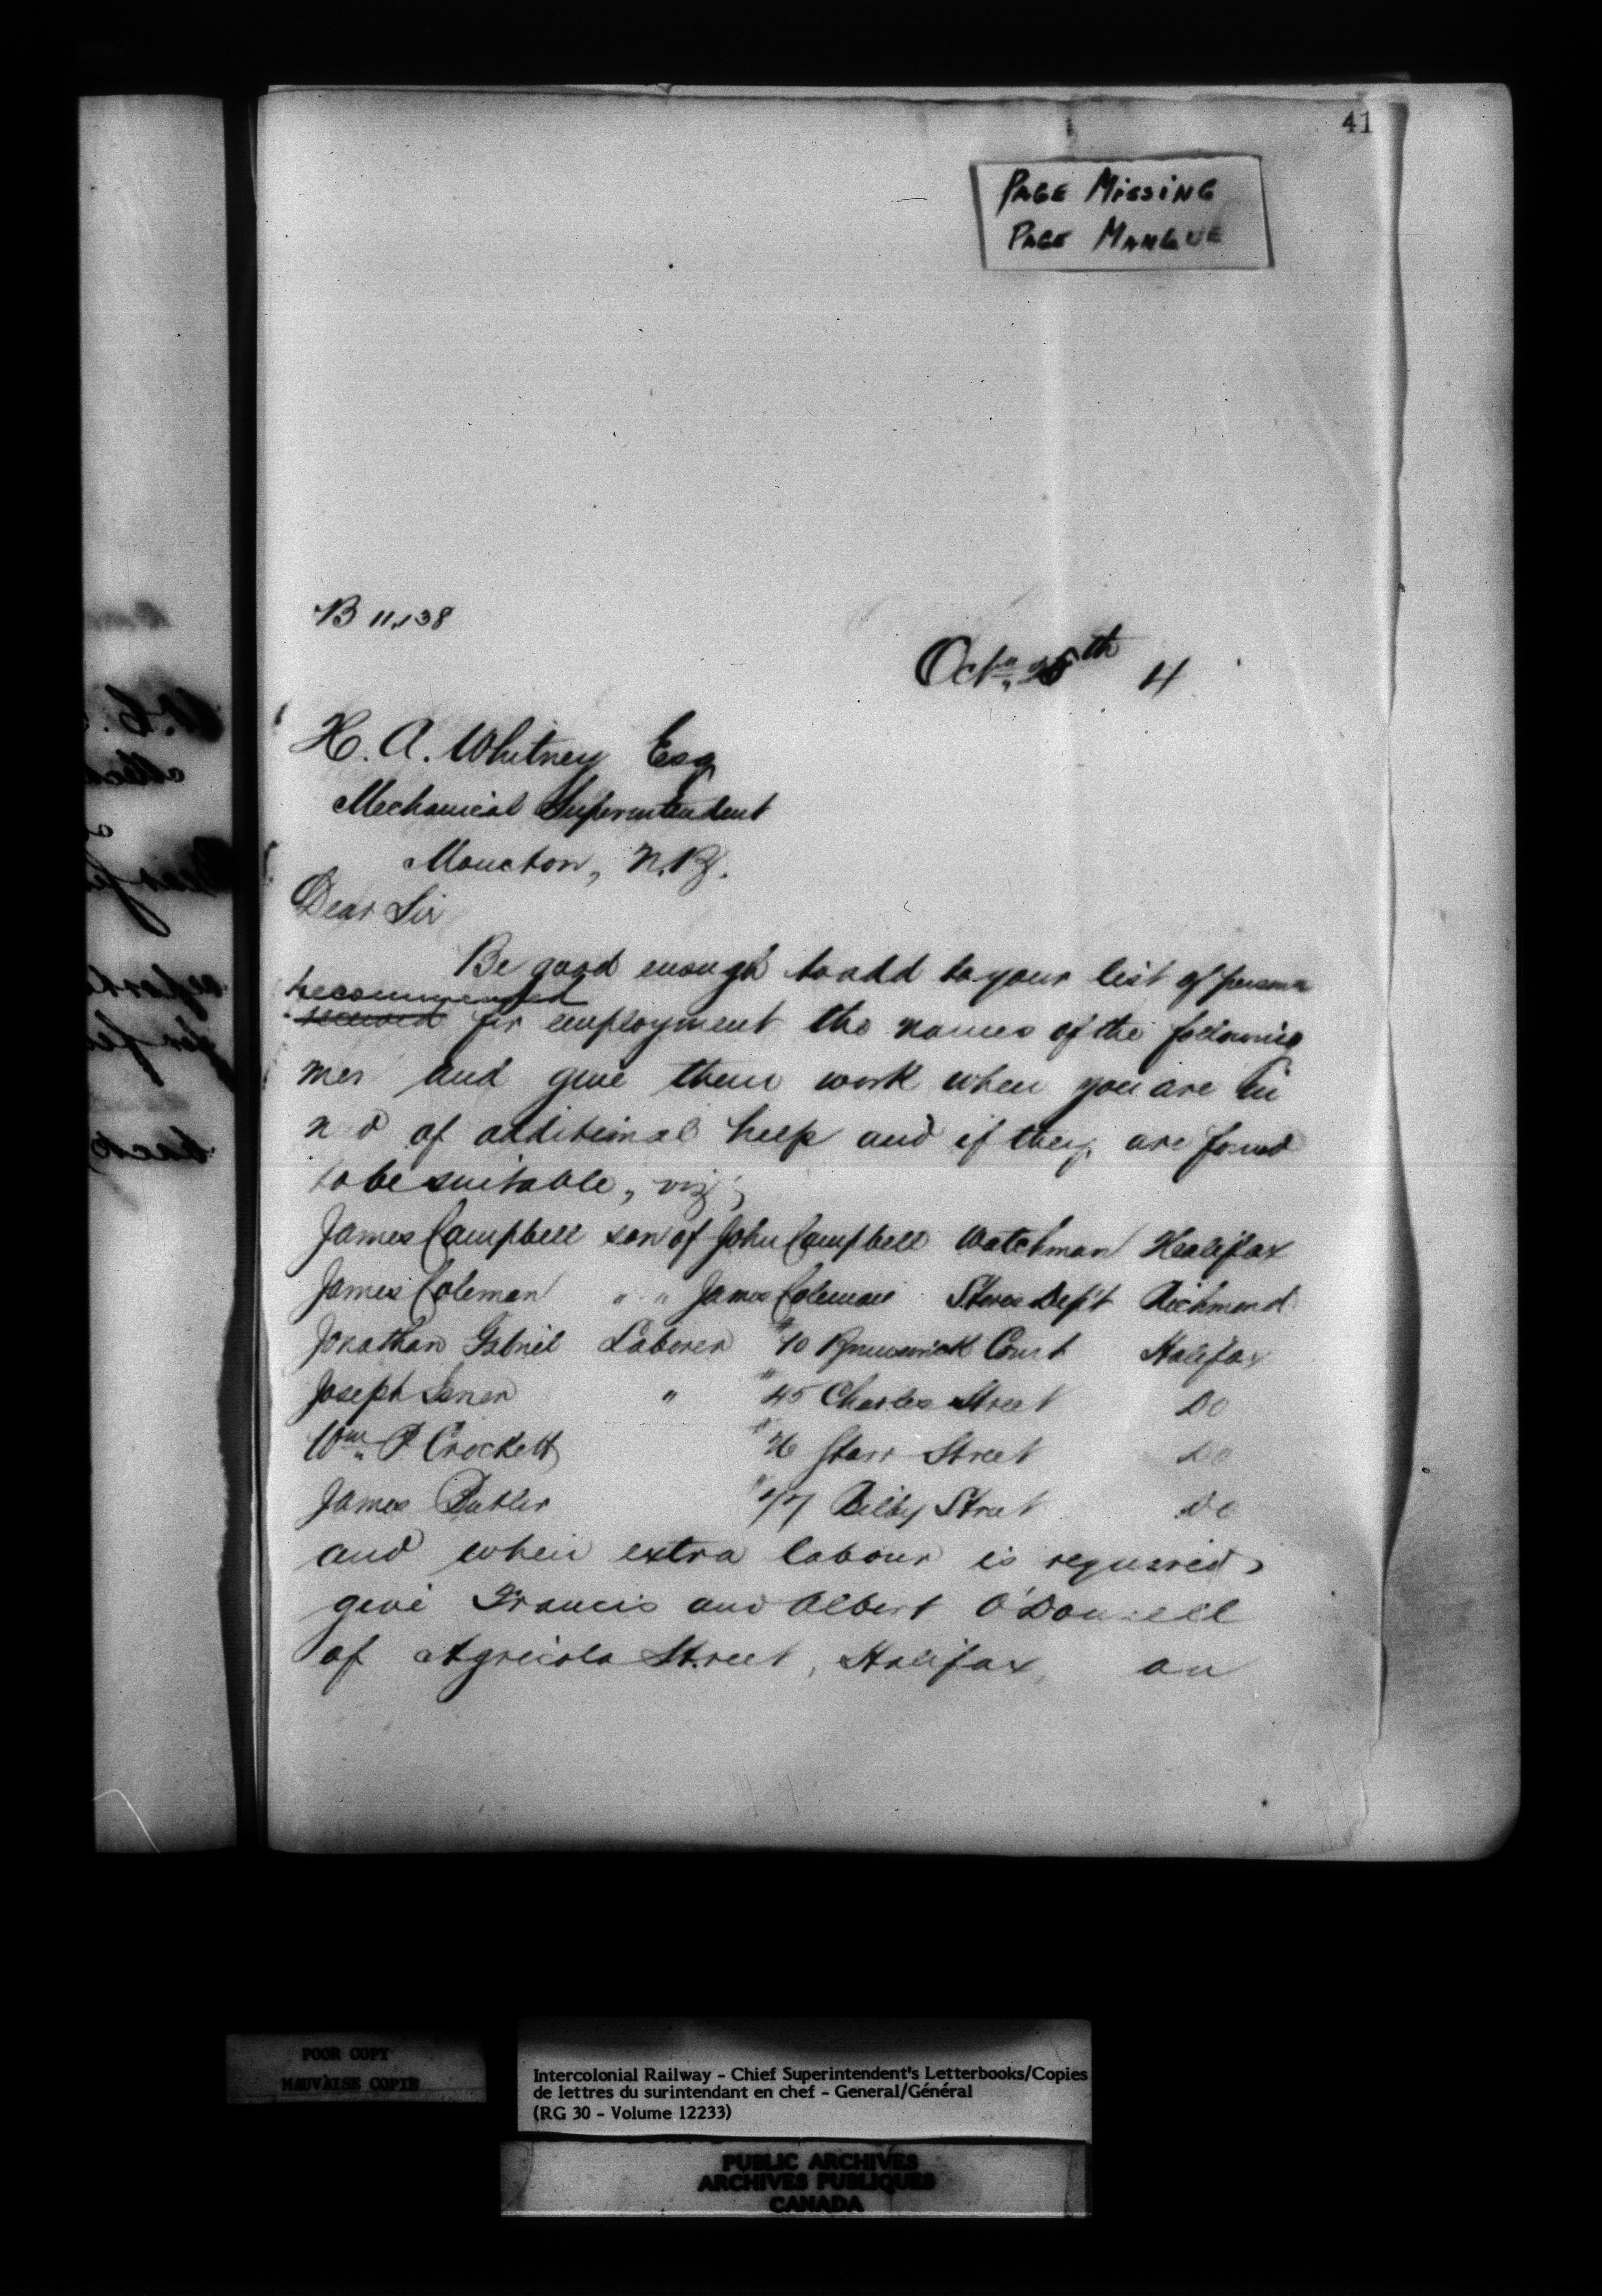 41
PAGE MISSING
PAGE MANQUE
B 11,138
Oct. th 4
H. A. Whitney Esq
Mechanical Superintendent
Moncton, N.B.
Dear Sir
Be good enough to add to your list of persons
recommended
received for employment the names of the following
men and give them work when you are in
n d of additional help and if they are found
to be suitable, viz;
James Campbell son of John Campbell Watchman Halifax
James Coleman " " James Coleman Stores Dep't Richmond
Jonathan Gabriel Laborer #10 Brunswick Court Halifax
Joseph " #45 Charles Street Do
Wm. P Crockett # Starr Street Do
James Butler Bilby Street Do
and when extra labour is required,
give Francis and Albert O'Donnell
of Agricola Street, Halifax, an
POOR COPY
MAUVAISE COPIE
Intercolonial Railway - Chief Superintendent's Letterbooks/Copies
de lettres du surintendant en chef - General/Général
(RG 30 - Volume 12233)
PUBLIC ARCHIVES
ARCHIVES PUBLIQUES
CANADA